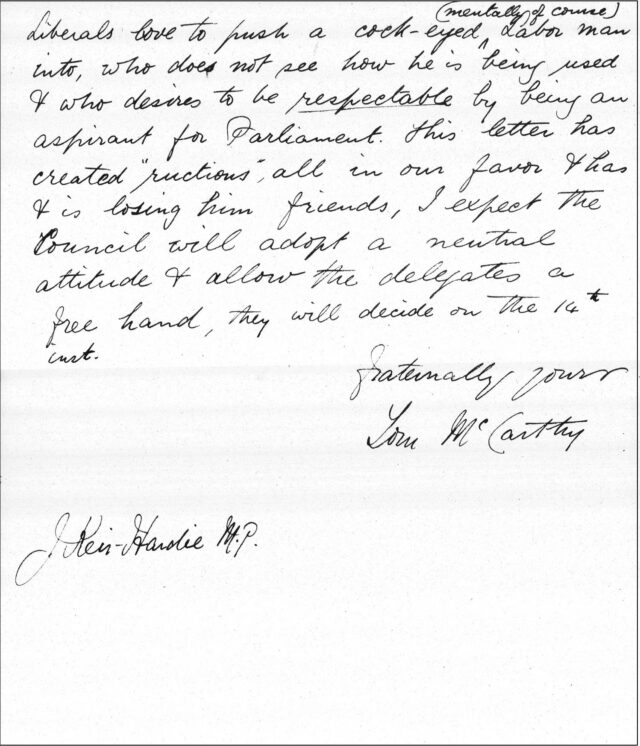 (mentally of course)
Liberals love to push a cock-eyed, Labor man
into, who does not see how he is being used
& who desires to be respectable by being an
aspirant for Parliament. This letter has
created "ructions", all in our favor & has
& is losing him friends, I expect the
Council will adopt a neutral
attitude & allow the delegates a
free hand, they will decide on the 14th
inst.
Fraternally yours
Tom McCarthy
J Keir-Hardie M.P.